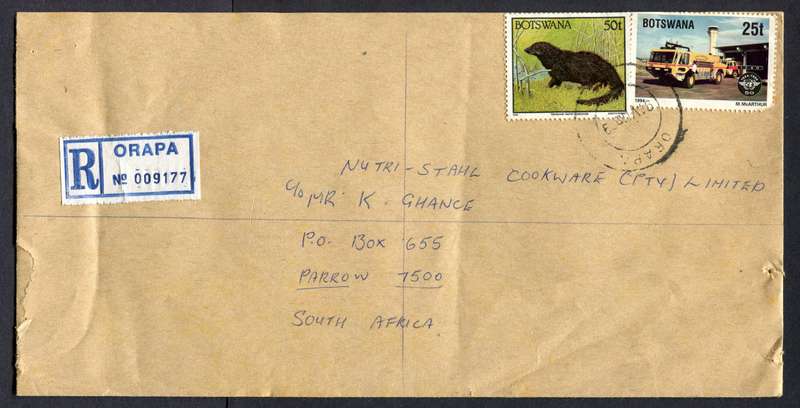 BOTSWANA 50t
BOTSWANA 25t
1994
M. McARTHUR
50
ORAPA
R ORAPA
Nº 009177
NUTRI-STAHL COOKWARE (PTY) LIMITED
c/o MR K. GHANCE
P.O. BOX 655
PARROW 7500
SOUTH AFRICA